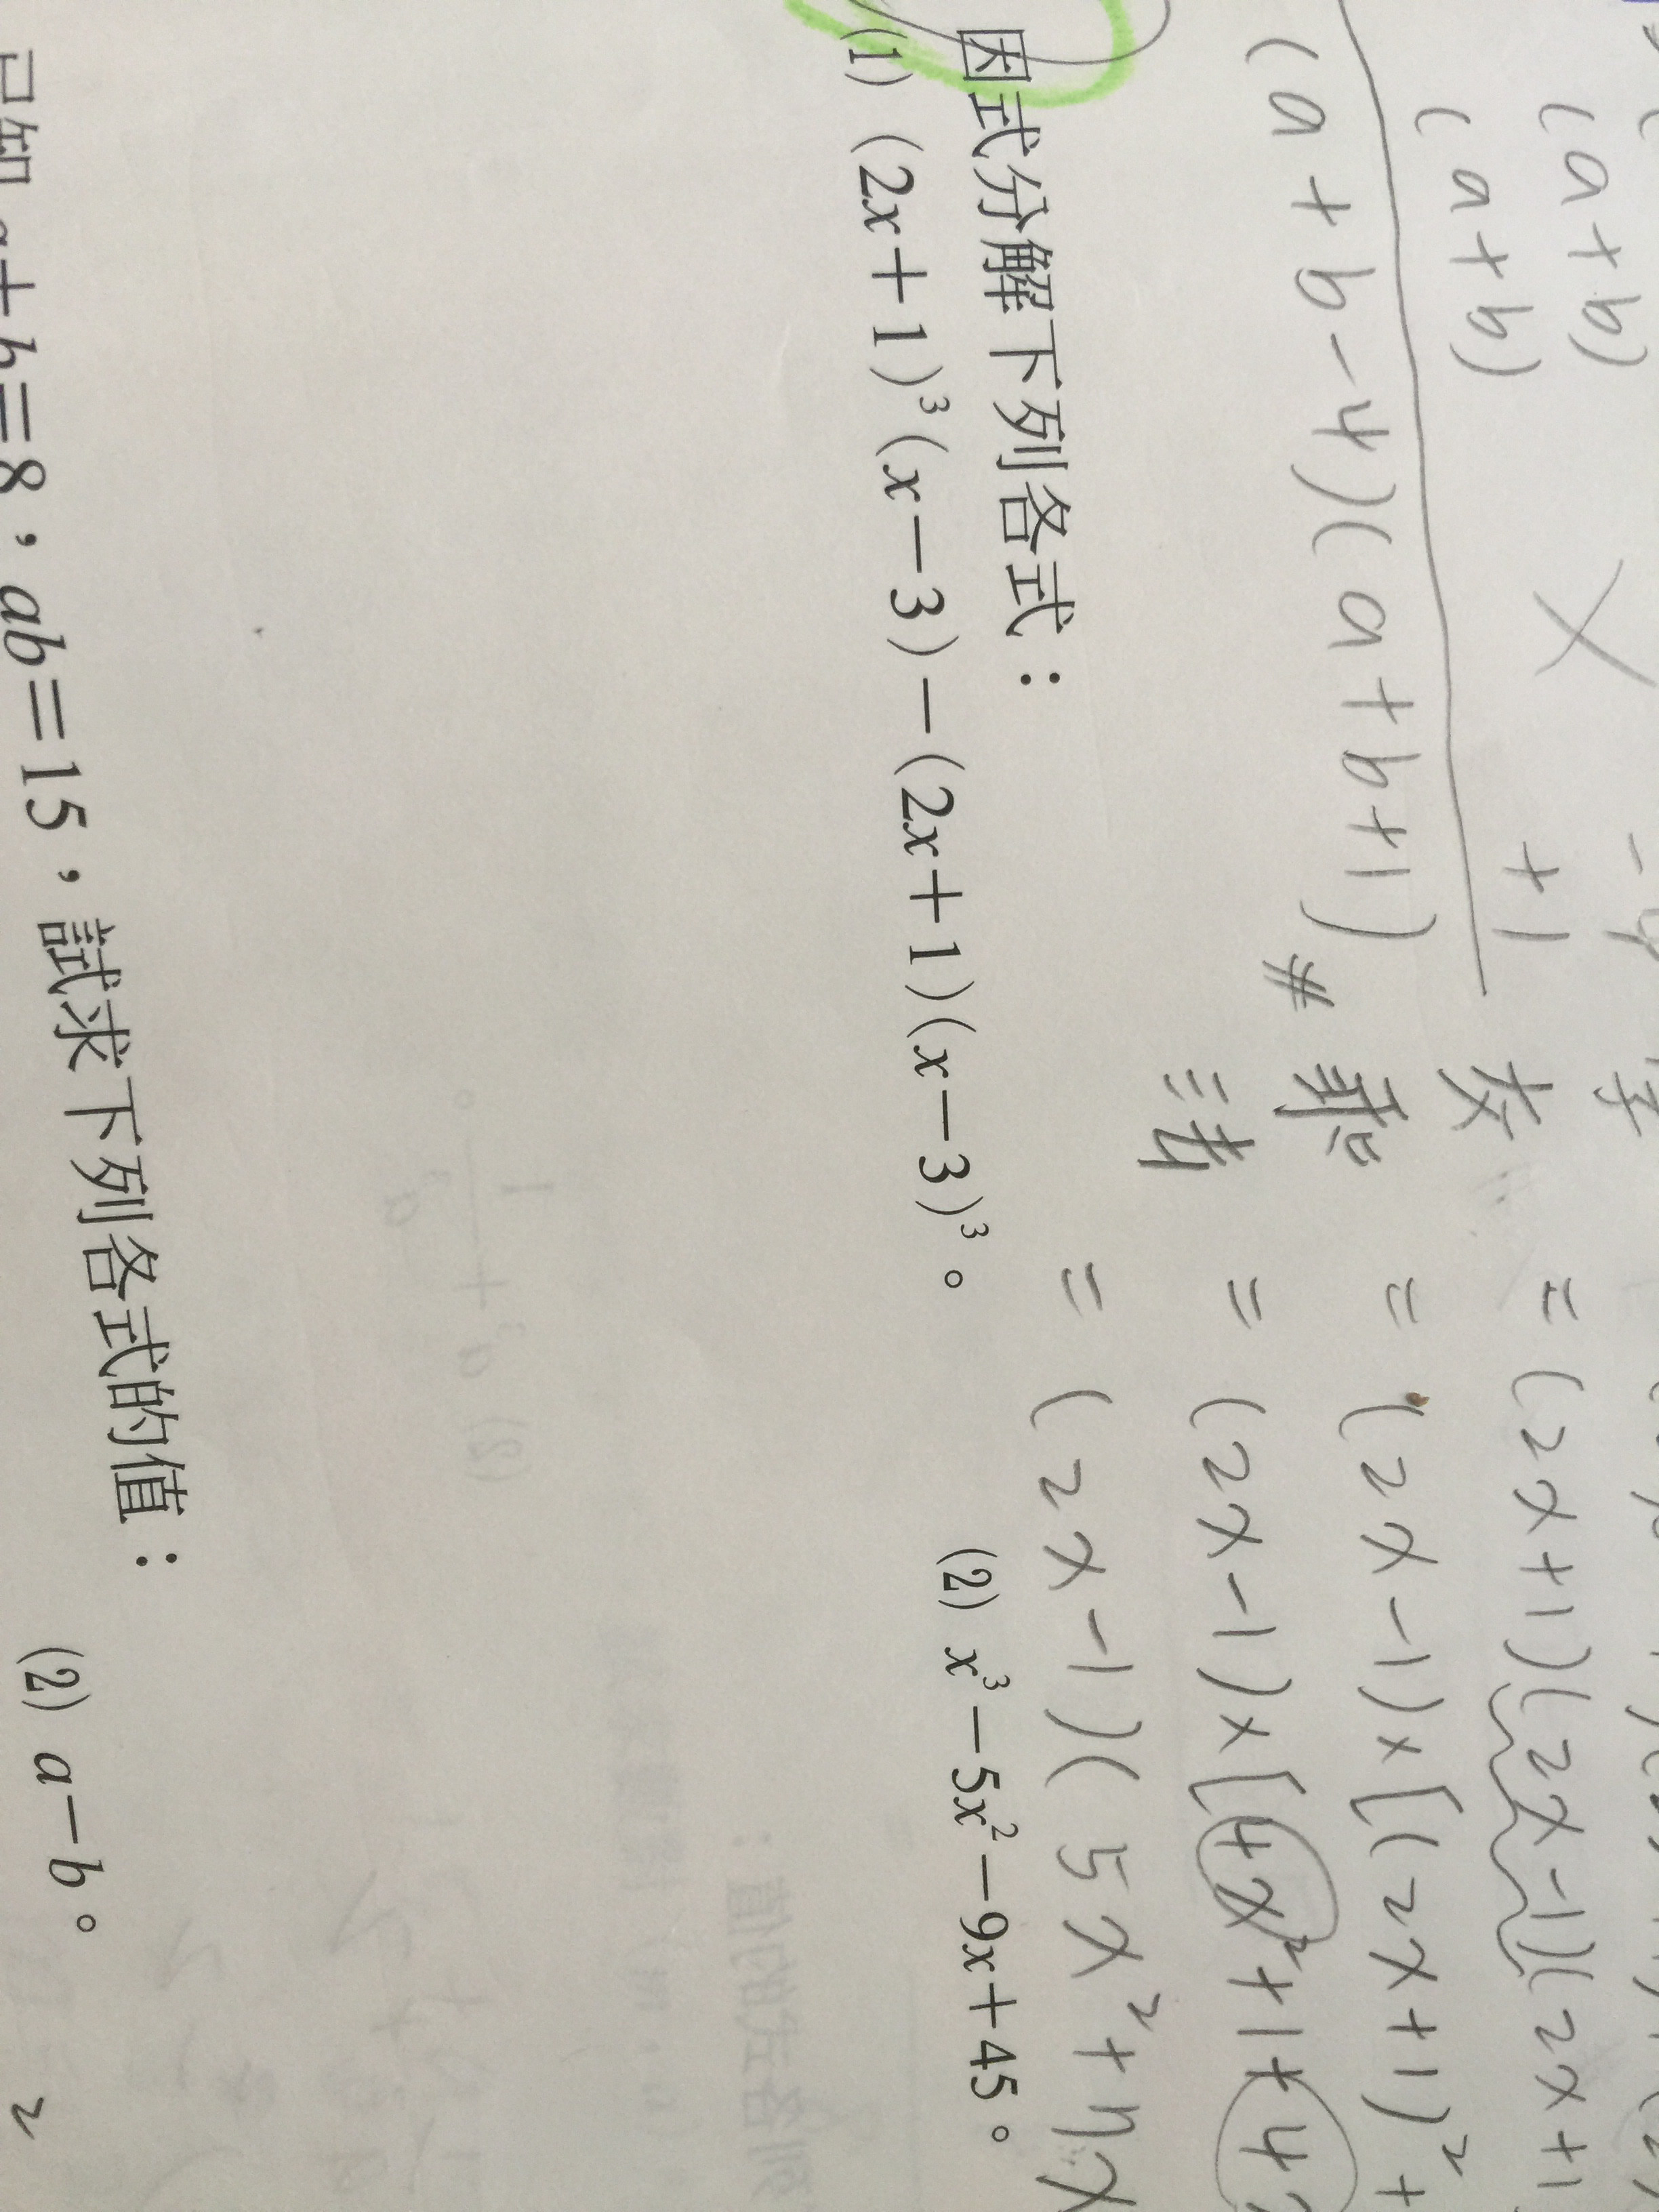 (a+b)
(a+b) +1
(a+b-4)(a+b+1)#
= (2x+1)(2x-1)(2x+1
= (2x-1)×[(2x+1)²+
= (2x-1)×[4x²+1+4
= (2x-1)(5x²+
因式分解下列各式：
(1) (2x+1)³(x-3)-(2x+1)(x-3)³。
(2) x³-5x²-9x+45。
已知 a+b=8，ab=15，試求下列各式的值：
(2) a-b。
2